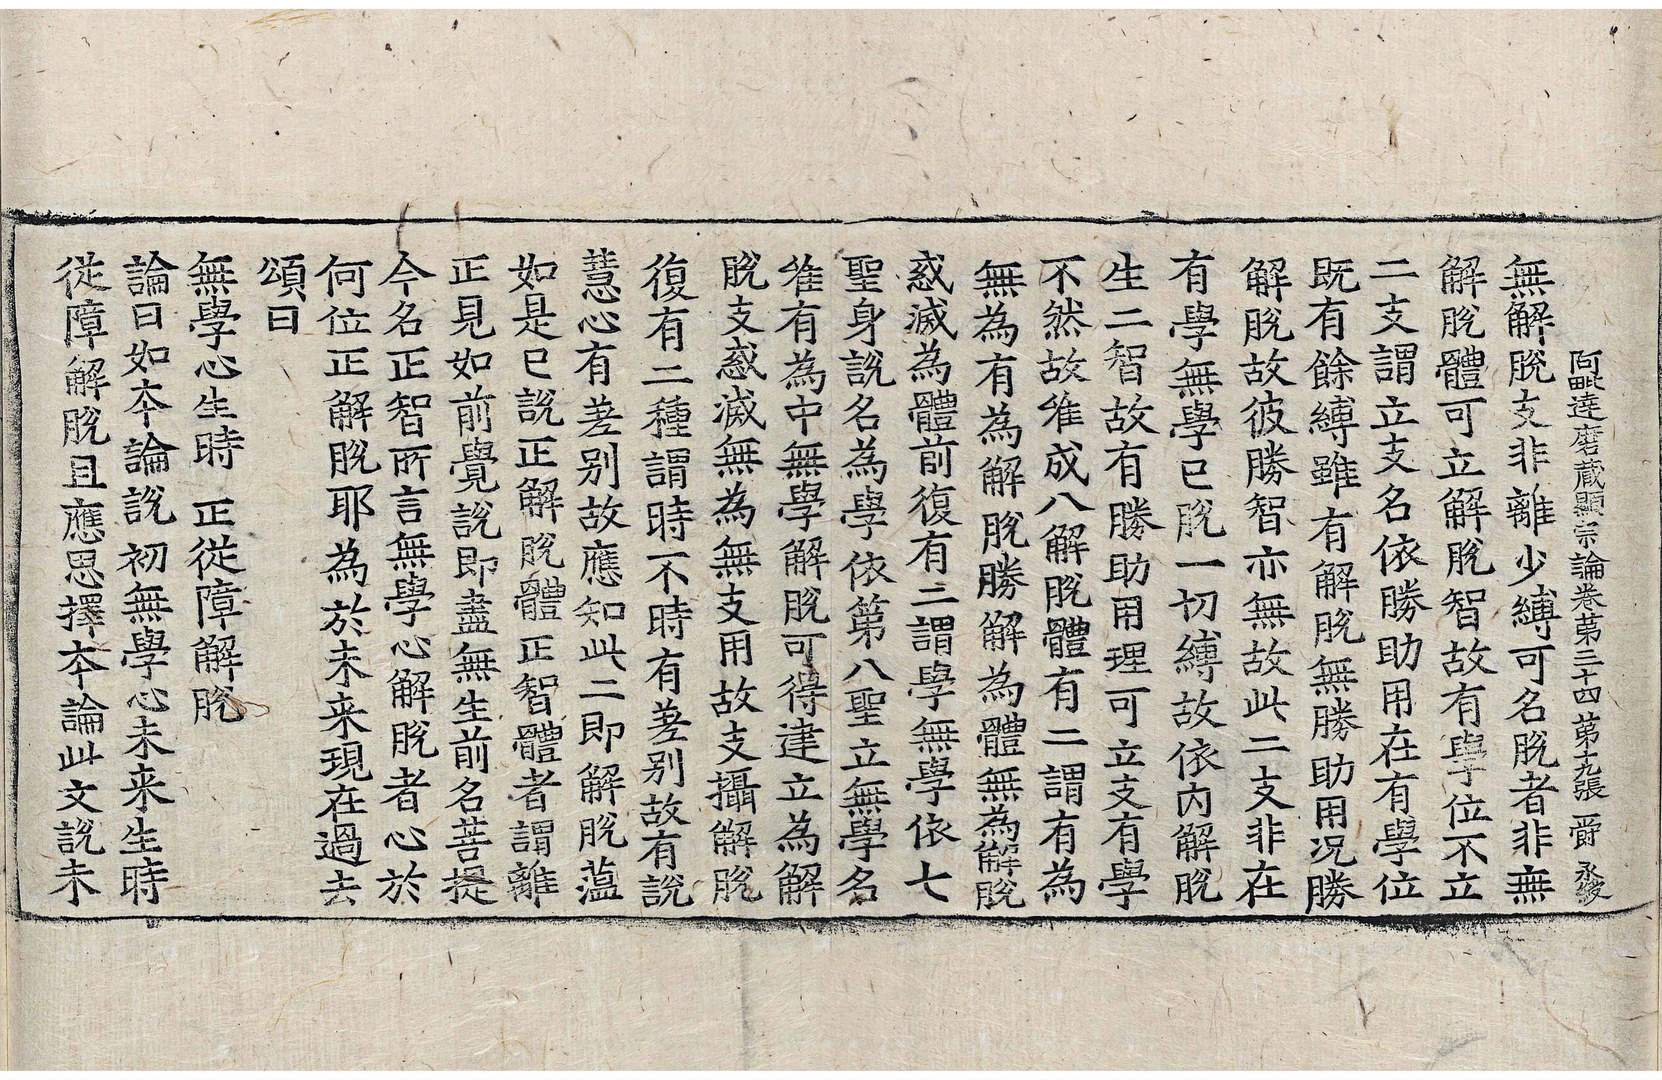 阿毗達磨藏顯宗論卷第三十四 第十九張 爵 永俊
無解脫支非離少縛可名脫者非無
解脫體可立解脫智故有學位不立
二支謂立支名依勝助用在有學位
既有餘縛雖有解脫無勝助用況勝
解脫故彼勝智亦無故此二支非在
有學無學已脫一切縛故依內解脫
生二智故有勝助用理可立支有學
不然故唯成八解脫體有二謂有為
無為有為解脫勝解為體無為解脫
惑滅為體前復有二謂學無學依七
聖身說名為學依第八聖立無學名
唯有為中無學解脫可得建立為解
脫支惑滅無為無支用故支攝解脫
復有二種謂時不時有差別故有說
慧心有差別故應知此二即解脫蘊
如是已說正解脫體正智體者謂離
正見如前覺說即盡無生前名菩提
今名正智所言無學心解脫者心於
何位正解脫耶為於未來現在過去
頌曰
無學心生時 正從障解脫
論曰如本論說初無學心未來生時
從障解脫且應思擇本論此文說未